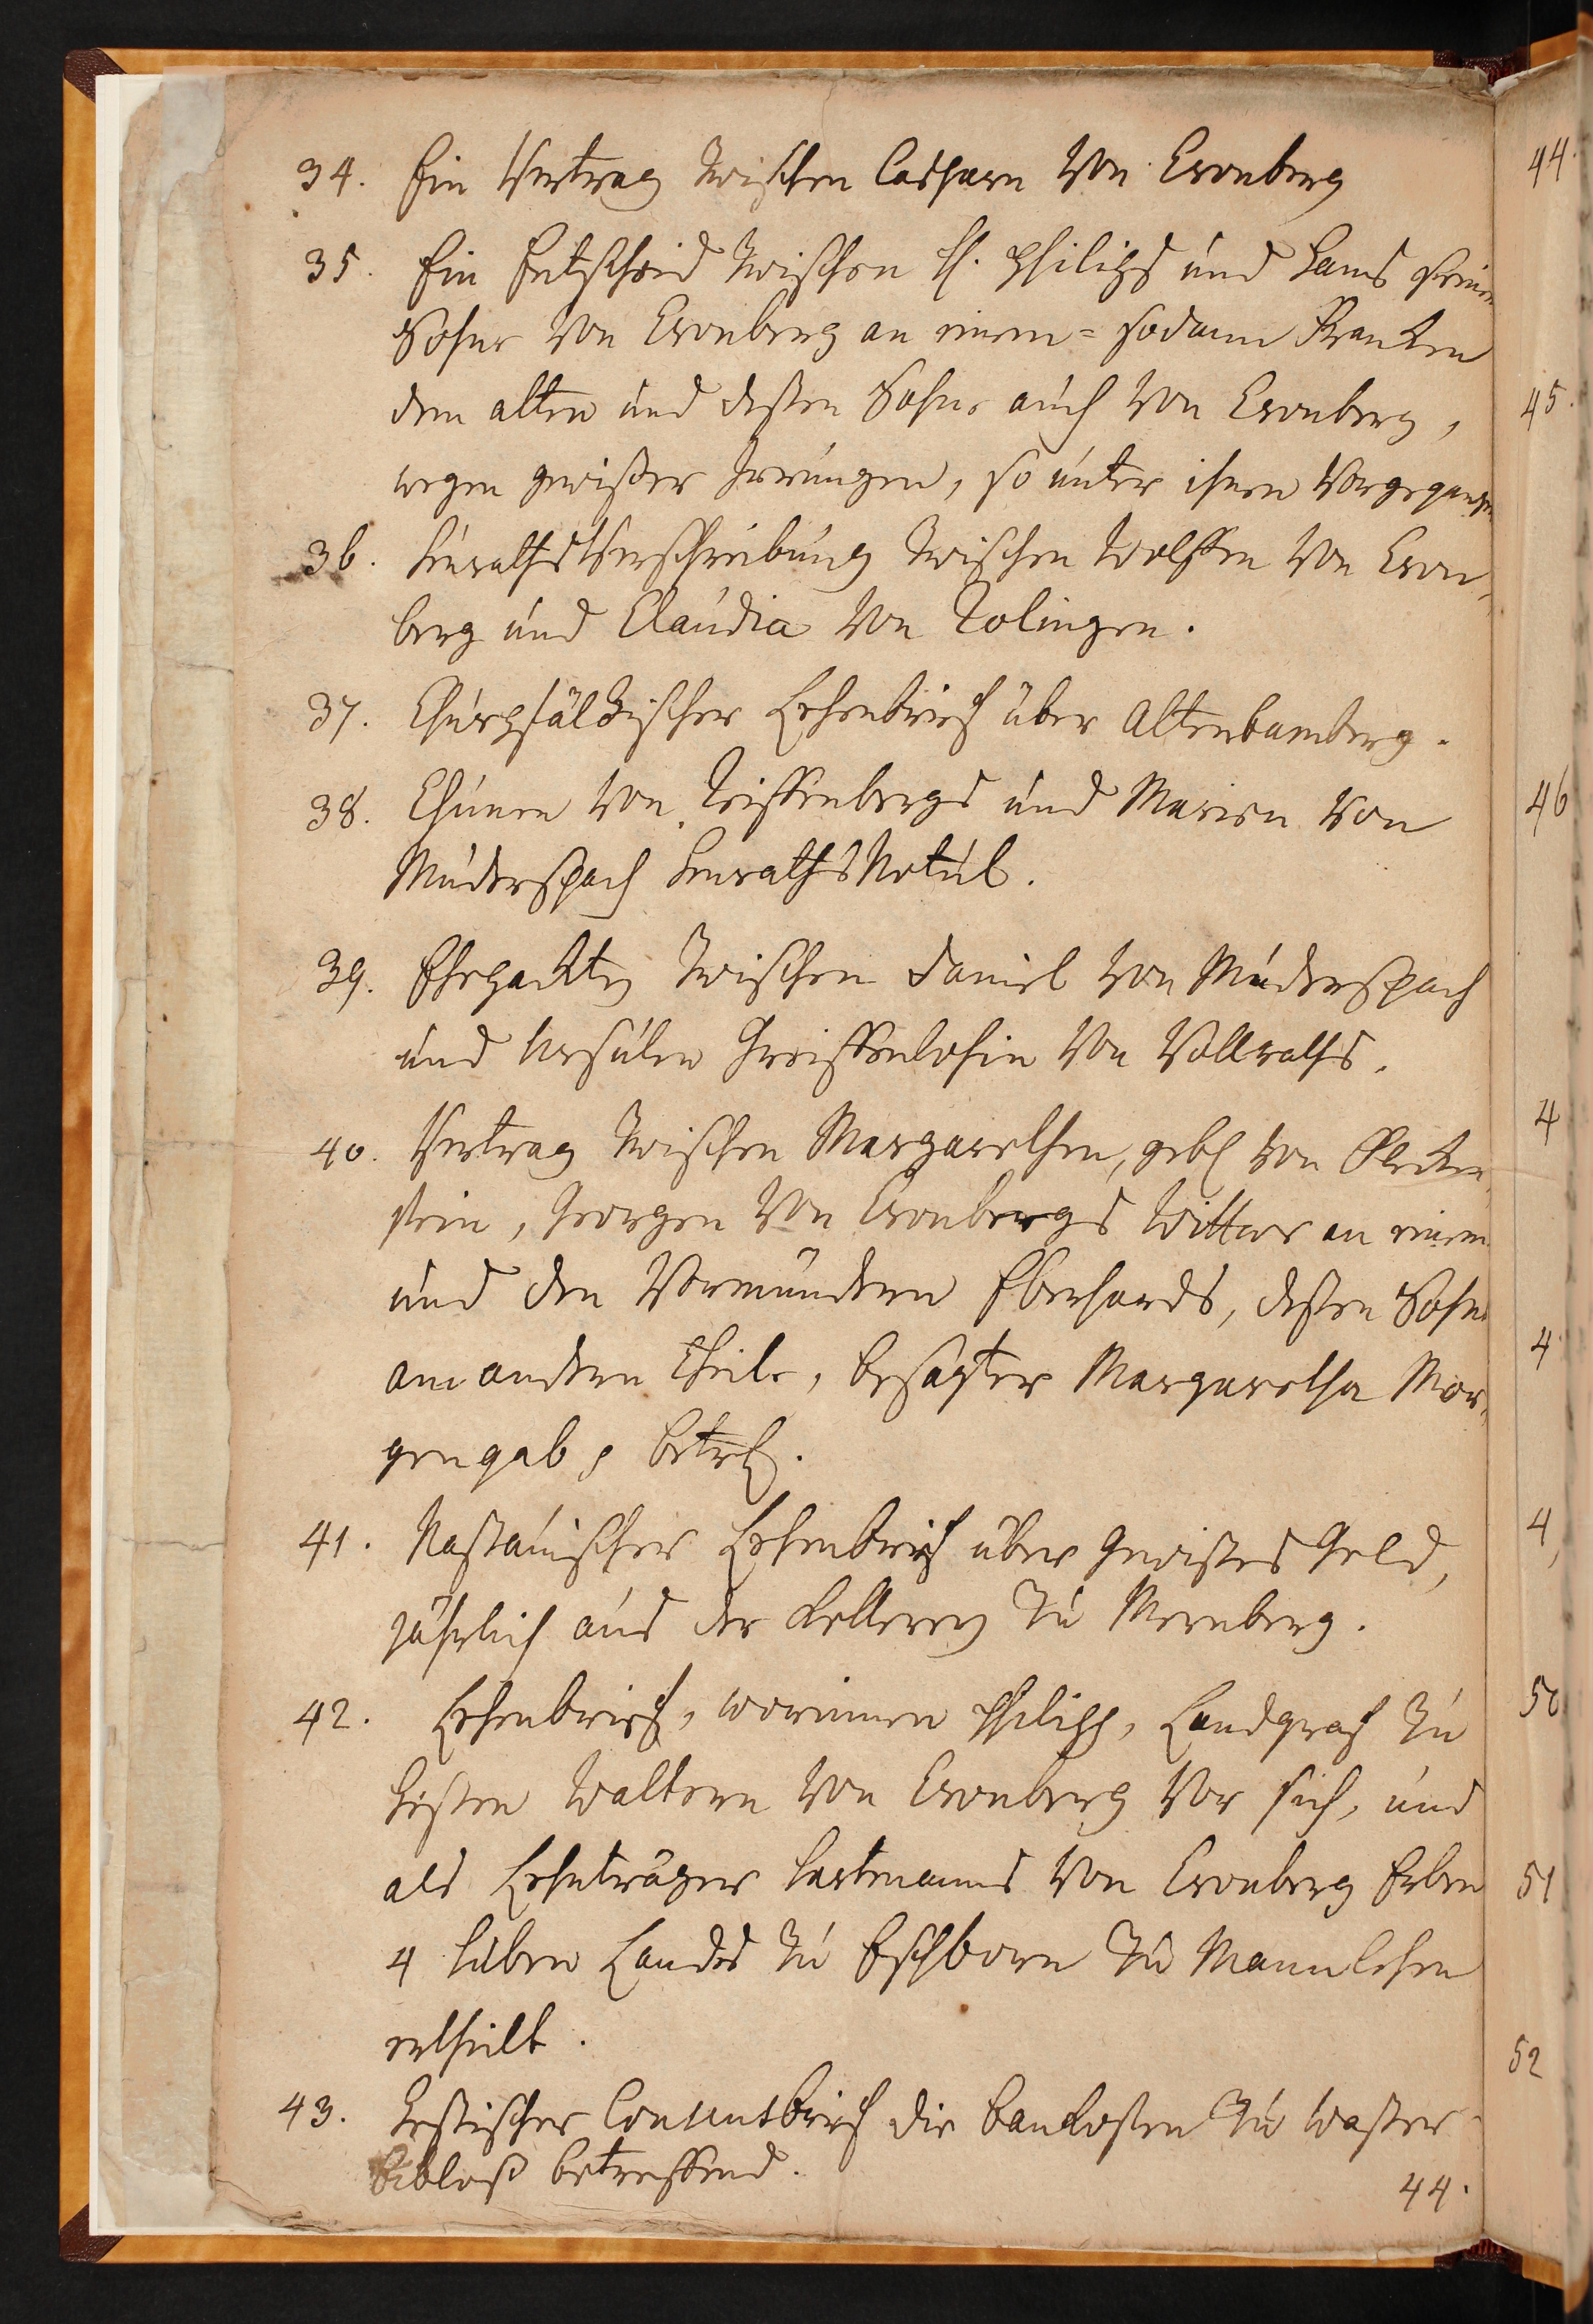 34. Ein Vertrag zwischen Casparn von Cronberg
35. Ein Entscheid zwischen H. Philips und Hans seinem
Sohne von Cronberg an einem= sodann Francken
dem alten und deßen Sohne auch von Cronberg,
wegen gewißer Irrungen, so unter ihnen vorgegangen
36. HeurathsVerschreibung zwischen Wolffen von Cron-
berg und Claudia von Zolingen.
37. Churpfältzischer Lehenbrief über Altenbamberg.
38. Chunen von Reiffenbergs und Marien von
Muderspach HeurathsNotul.
39. Ehepackten zwischen Daniel von Muderspach
und Ursulen Greiffenclohin von Vollraths.
40. Vertrag zwischen Margarethen, gebl von Flecken-
stein, Georgen von Cronbergs Wittwe an einem
und den Vormündern Eberhards, deßen Sohns
am andern Theile, besagter Margaretha Mor-
gengab betrl.
41. Naßauischer Lehenbrief über gewißes Geld,
jährlich aus der Kellerey zu Merenberg.
42. Lehenbrief, worinnen Philipp, Landgraf zu
Heßen Waltern von Cronberg vor sich, und
als Lehnträger Hartmanns von Cronberg Erben
4 Huben Landes zu Eschborn zu Mannlehen
ertheilt.
43. Heßischer Consensbrief die Baukosten zu Waßer-
Bibloß betreffend.
44.
44.
45.
46
4
4
4
50
51
52